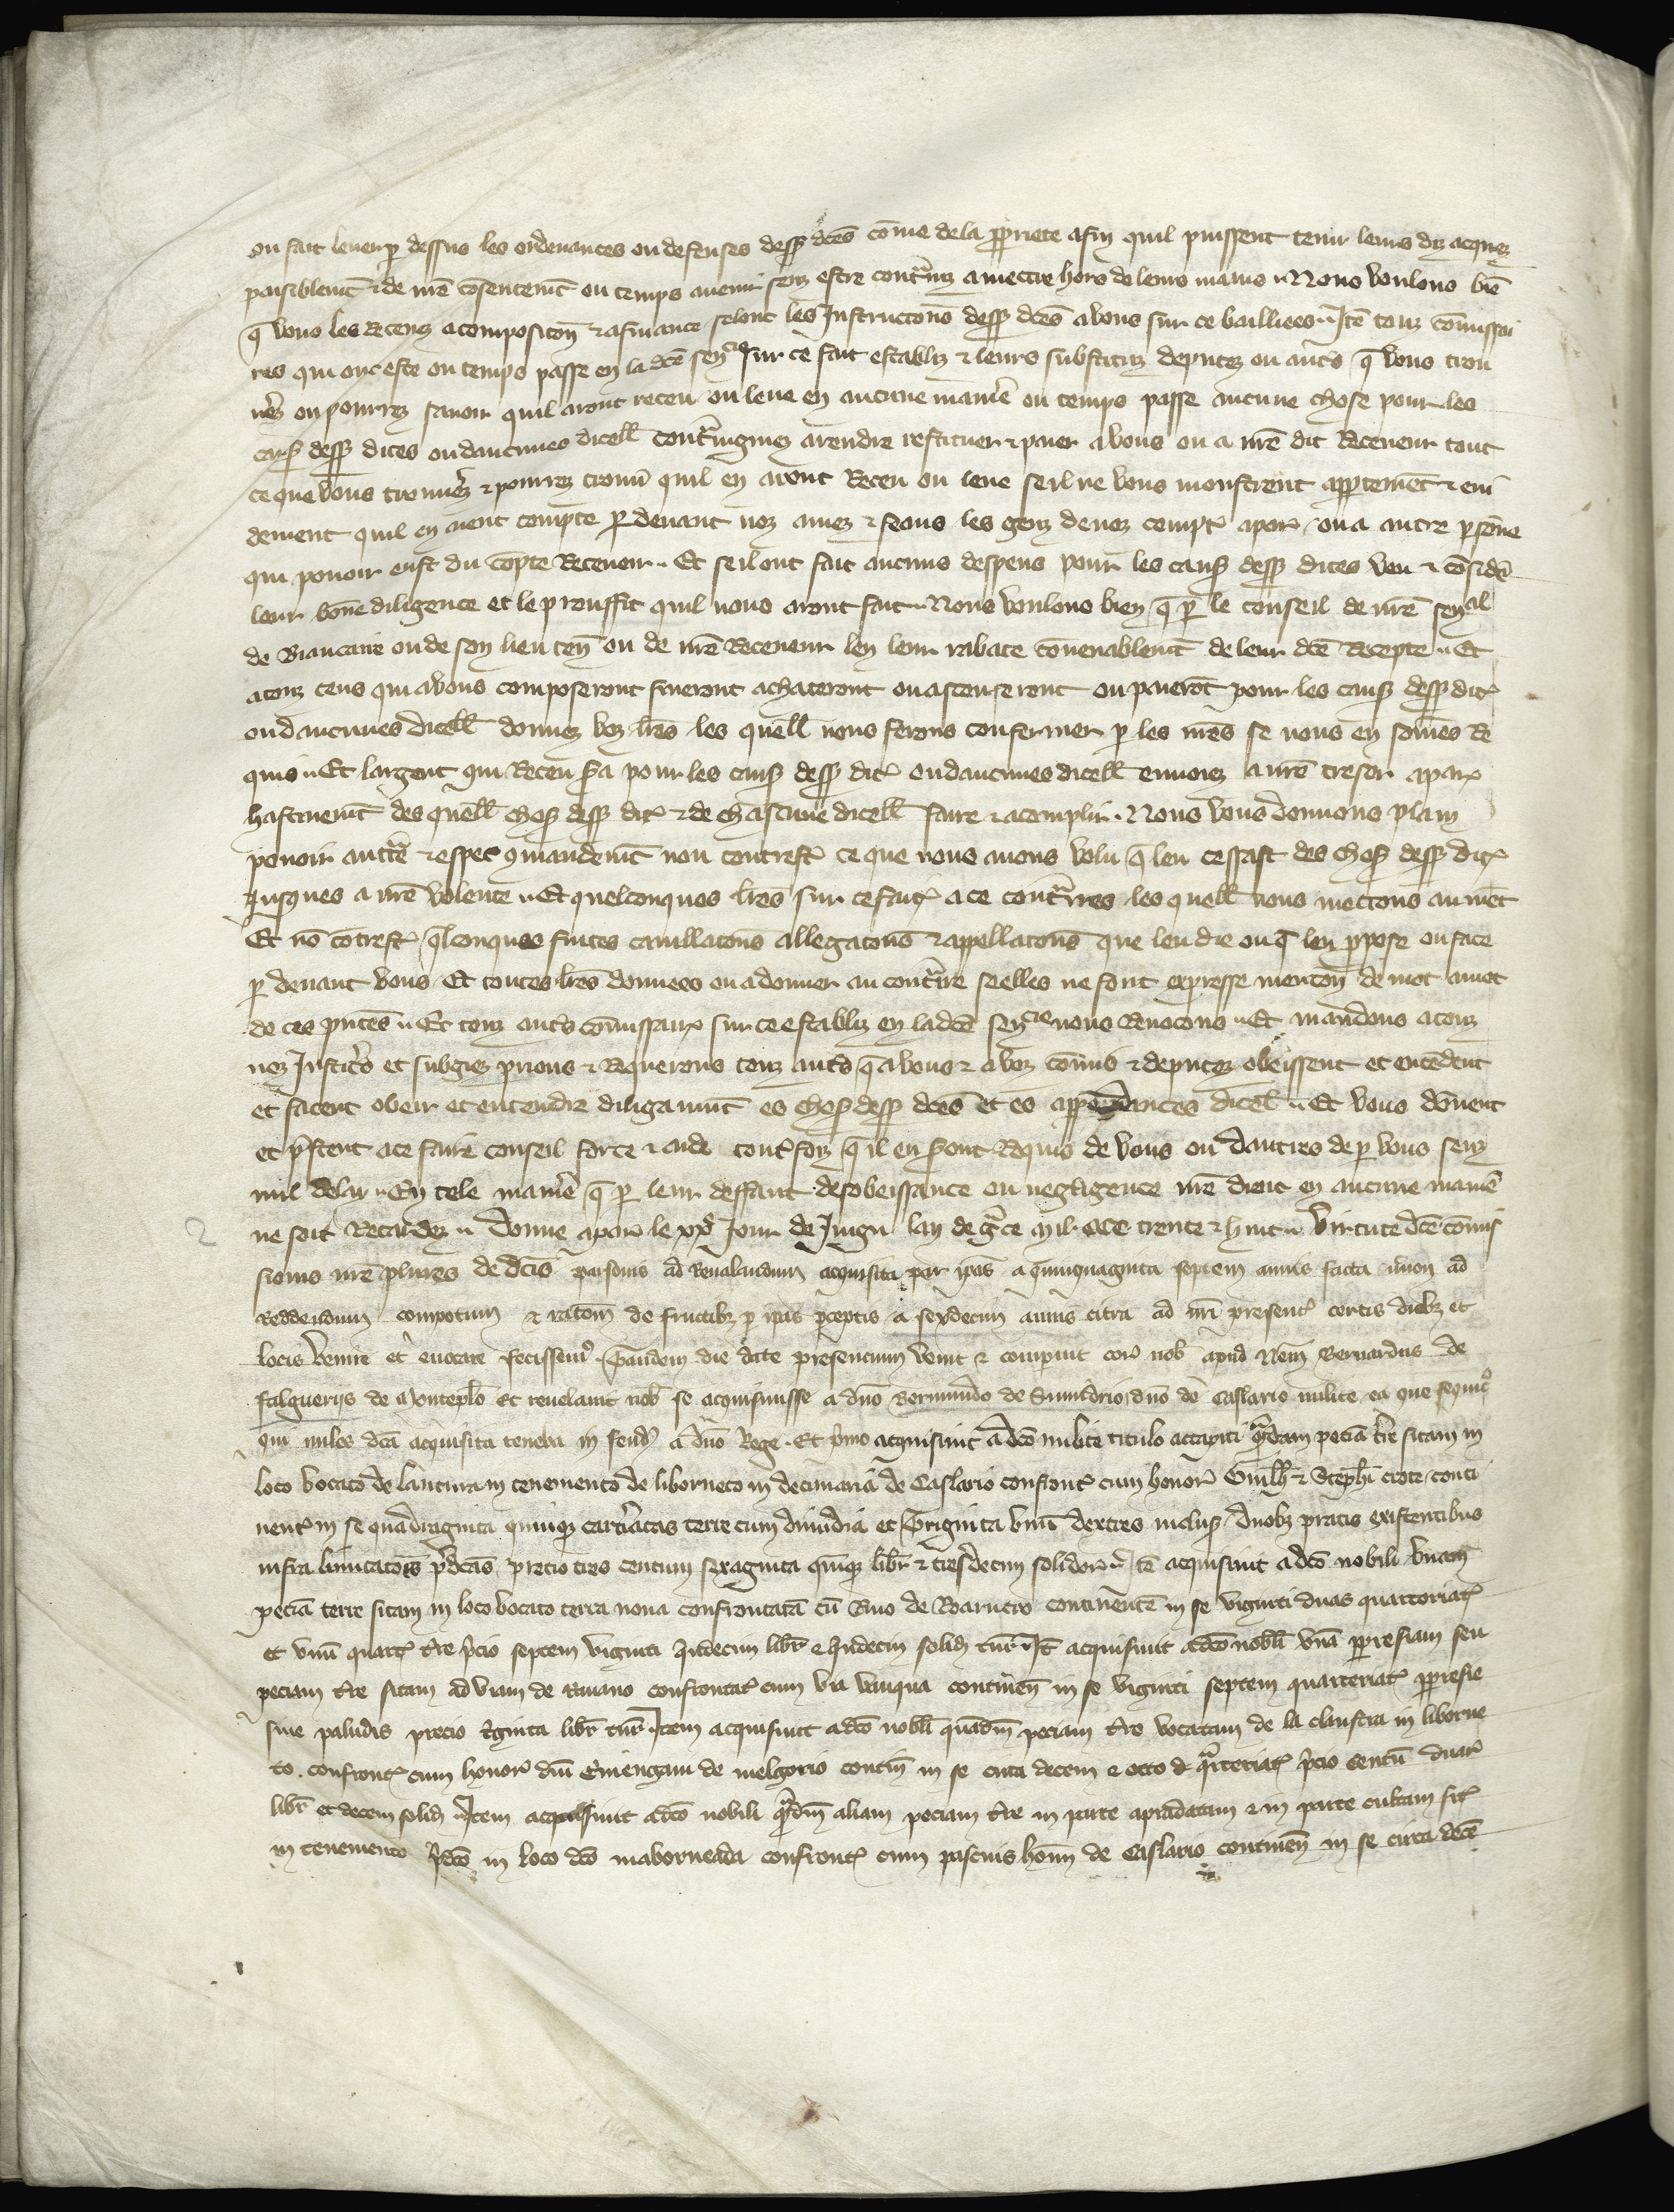 ou fait lever p dessus les ordenances ou defenses dessꝰ dc̄es cōme de la ꝓpriete afin quil puissent tenir leurs diz acquez
paisiblemt̄ & de nr̄e cōsentemt̄ ou temps avenir senz estre cont̄inz a mectre hors de leurs mains .. Nous voulons biē
q̄ vous les recevez a composicōn & a finance selonc les Instructōns dessꝰ dc̄es a vous sur ce bailliees .. Itē touz cōmissai
res qui ont este ou temps passe en la dc̄e senͨͤ sur ce fait establiz & leurs substituz deputez ou aut̄s q̄ vous trou
ṽez ou pourrez savoir quil aront receu ou leve en aucune maniē ou temps passe aucune chose pour les
causꝰ dessꝰ dites ou daucunes dicell̄ cont̄ingniez a rendre restituer & paier a vous ou a nr̄e dit Receveur tout
ce que vous trouvẽz & pourrez trouv̄ quil en aront Receu ou leve se il ne vous monstrent apptemēt & evi
dement quil en aient compte p devant noz amez & feaus les genz de noz compt̄ a par̄ ou a autre p̄sōne
qui pouoir eust du cōpte Recevoir .. Et se il ont fait aucuns despens pour les causꝰ dessꝰ dites veu & cōsid̄e
leur bōne diligence et le prouffit quil nous aront fait .. Nous voulons bien q̄ p le conseil de nr̄e senͣˡ
de Biaucaire ou de son lieu ten̄ ou de nr̄e Receveur len leur rabate cōvenablemt̄ de leur dc̄e Recepte .. Et
a touz ceus qui a vous composeront fineront achateront ou ascenseront ou paierōt pour les causꝰ dessꝰ dit̄
ou daucunes dicell̄ donnez voz lr̄es les quell̄ nous ferons confermer p les nr̄es se nous en sōmes Re
quis .. Et largent qui Receu s̄a pour les causꝰ dessꝰ dit̄ ou daucunes dicell̄ envoiez a nr̄e tresor a par̄
hastivemt̄ des quell̄ chosꝰ dessꝰ dit̄ & de chascune dicell̄ faire & acomplir . Nous vous donnons plain
pouoir auct̄e & esper ꝯmandemt̄ non contrest̄ ce que nous avons volu q̄ len cessast des chosꝰ dessꝰ dit̄
Jusques a nr̄e volente .. Et quelconques lr̄es sur ce fait̄ a ce cont̄ires les quell̄ nous mectons au niēt
Et nō cōtrest̄ q̄lconques fuites cavillatōns allegatōns & appellatōns que len die ou q̄ len ppose ou face
p devant vous Et toutes lr̄es donnees ou a donner au cont̄ire se elles ne font expresse mencōn de mot a mot
de ces p̄ntes .. Et touz aut̄s cōmissair̄ sur ce establiz en la dc̄e senͨͤ nous Revocons .. Et mandons a touz
noz Justic̄s et subgiez prions & Requerons touz aut̄s q̄ a vous & a voz cōmis & deputez obeissent et entēdent
et facent obeir et entendre diligaumt̄ es chosꝰ dessꝰ dc̄es et es appendances dicel̄ .. Et vous dōnent
et p̄stent a ce faire conseil force & aide tout̄ foiz q̄ il en s̄ont Requis de vous ou dautres de p vous senz
nul delay .. En tele maniē q̄ p leur deffaut desobeissance ou negligence nr̄e droit en aucune maniē
ne soit Retardez .. Donne a par̄ le xxͤ Jour de Juign lan de gr̄ce mil ccc trente & huit .. Virtute dc̄e cōmis
sionis nr̄e plures de dc̄is personis ad Revelandum acquisita per ip̄as a quinquaginta septem annis facta nec non ad
Reddendum compotum & ratōem de fructibꝫ p ip̄as p̄ceptis a sexdecim annis citra ad nr̄i presenc̄ certis diebꝫ et
locis venire et evocare fecissemꝰ . Tandem die date presencium venit & comparuit cor̄ nob̄ apud Nem̄ Bernardus de
falgueriis de Montepl̄o Et revelavit nob̄ se acquisivisse a dn̄o Bermundo de Sumidrio dn̄o de Caslario milite ea que sequnt̄
qui miles dc̄a acquisita teneba in feudꝰ a dn̄o Rege . Et p̄mo acquisivit a dc̄o milite titulo accapiti q̄dam peciā tr̄e sitam in
loco vocato de lantura in tenemento de liberneto in decimaria de Caslario confront̄ cum honor̄ Guill̄i & Steph̄i crote conti
nent̄ in se quadraginta quinqꝫ cart̄iatas terre cum dimidia et Triginta unū dextres inclusꝰ duobꝫ pratis existentibus
infra limitatōes p̄dc̄as precio tres centum sexaginta quinqꝫ libr̄ & tresdecim solidor̄ .. Itē acquisivit a dc̄o nobili unam
peciā terre sitam in loco vocato terra nova confrontatā cū Rivo de Roanicio continentē in se viginti duas quarteriat̄
et unū quart̄ tr̄e p̄cio septem viginti undecim libr̄ & undecim solidꝰ tur̄ .. Itē acquisivit a dc̄o nobil̄i unā presiam seu
peciam tr̄e sitam ad viam de Rivano confrontat̄ cum via antiqua continen̄ in se viginti septem quarteriat̄ presie
sive paludis precio t̄ginta libr̄ tur̄ .. Item acquisivit a dc̄o nobil̄i quādam peciam tr̄e vocatam de la claustra in liberne
to . confront̄ cum honor̄ dn̄i Ermengavi de melgorio contin̄ in se circa decem & octo q̄rteriat̄ p̄cio centū duar̄
libr̄ et decem solidꝰ .. Item acquisivit a dc̄o nobili q̄ndam aliam peciam tr̄e in parte apradatam & in parte cultam sit̄
in tenemento p̄dc̄o in loco dc̄o maborneada confront̄ cum pascuis hom̄ de Caslario continen̄ in se circa decē